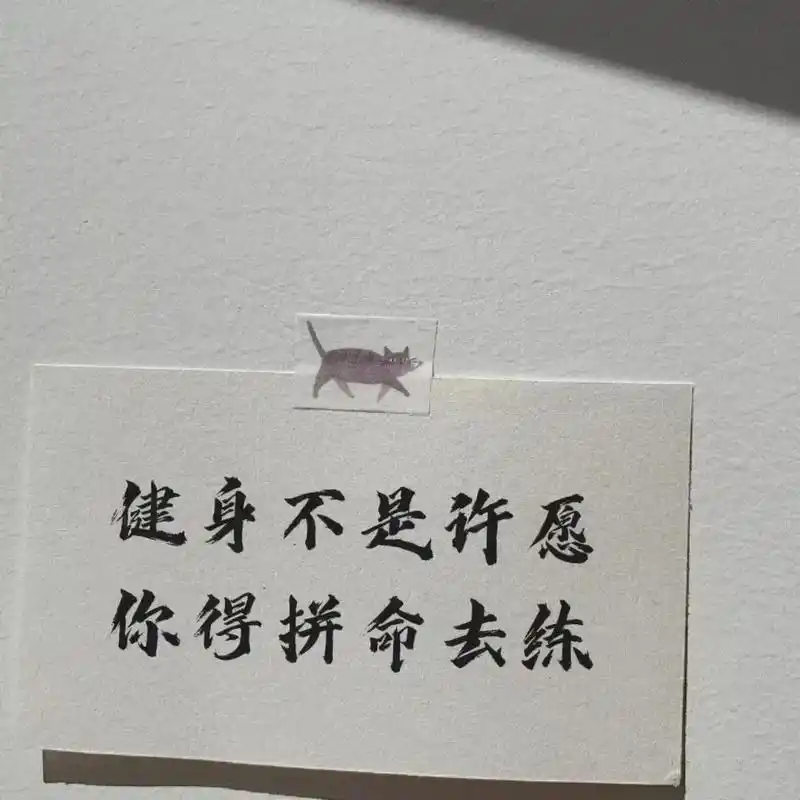 健身不是许愿
你得拼命去练